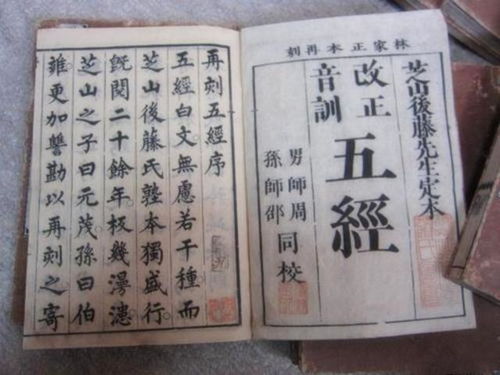 林家正本再刻
芝山後藤先生定本
改正
音訓
五經
男師周
孫師邵
同校
再刻五經序
五經白文無慮若干種而
芝山後藤氏塾本獨盛行
既閱二十餘年板幾漫漶
芝山之子曰元茂孫曰伯
雖更加讐勘以再刻之寄